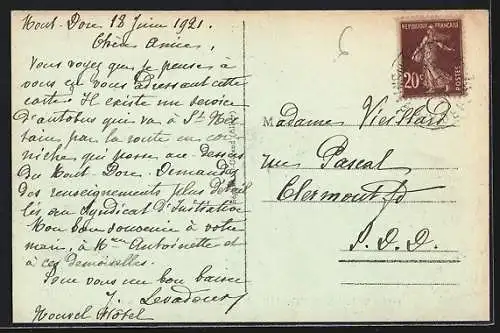 Mont-Dore 18 Juin 1921.
Chère Amie,
Vous voyez que je pense à
vous en vous adressant cette
carte. Il existe un service
d'autobus qui va à St Nec-
taire par la route en cor-
niche qui passe au-dessus
du Mont-Dore. Demandez
des renseignements plus détail-
lés au Syndicat d'Initiative
Mon bon souvenir à votre
mari, à Mme Antoinette et
à ces demoiselles.
Pour vous un bon baiser
J. Levadoux
Hôtel
REPUBLIQUE FRANÇAISE
20c
POSTES
Madame Vieillard
rue Pascal
Clermont-Fd
P.D.D.